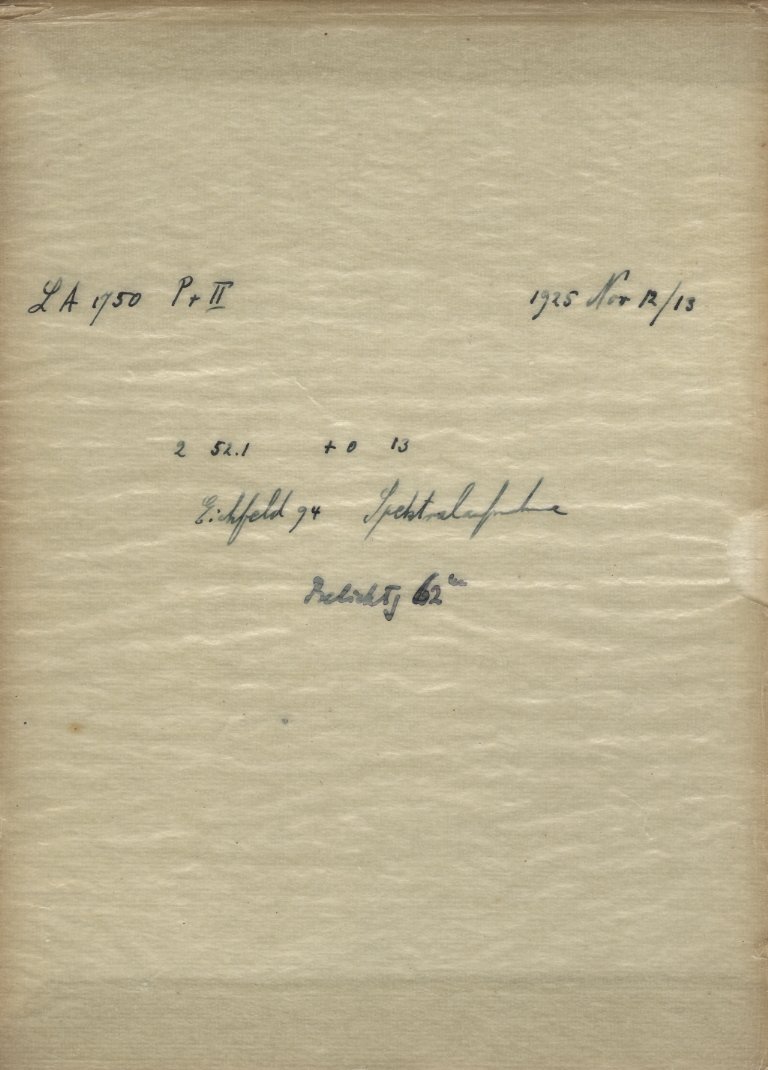 LA 1750 Pr II 1925 Nov 12/13
2 52.1 + 0 13
Eichfeld 94 Spektralaufnahme
Belichtg 62ᵐ